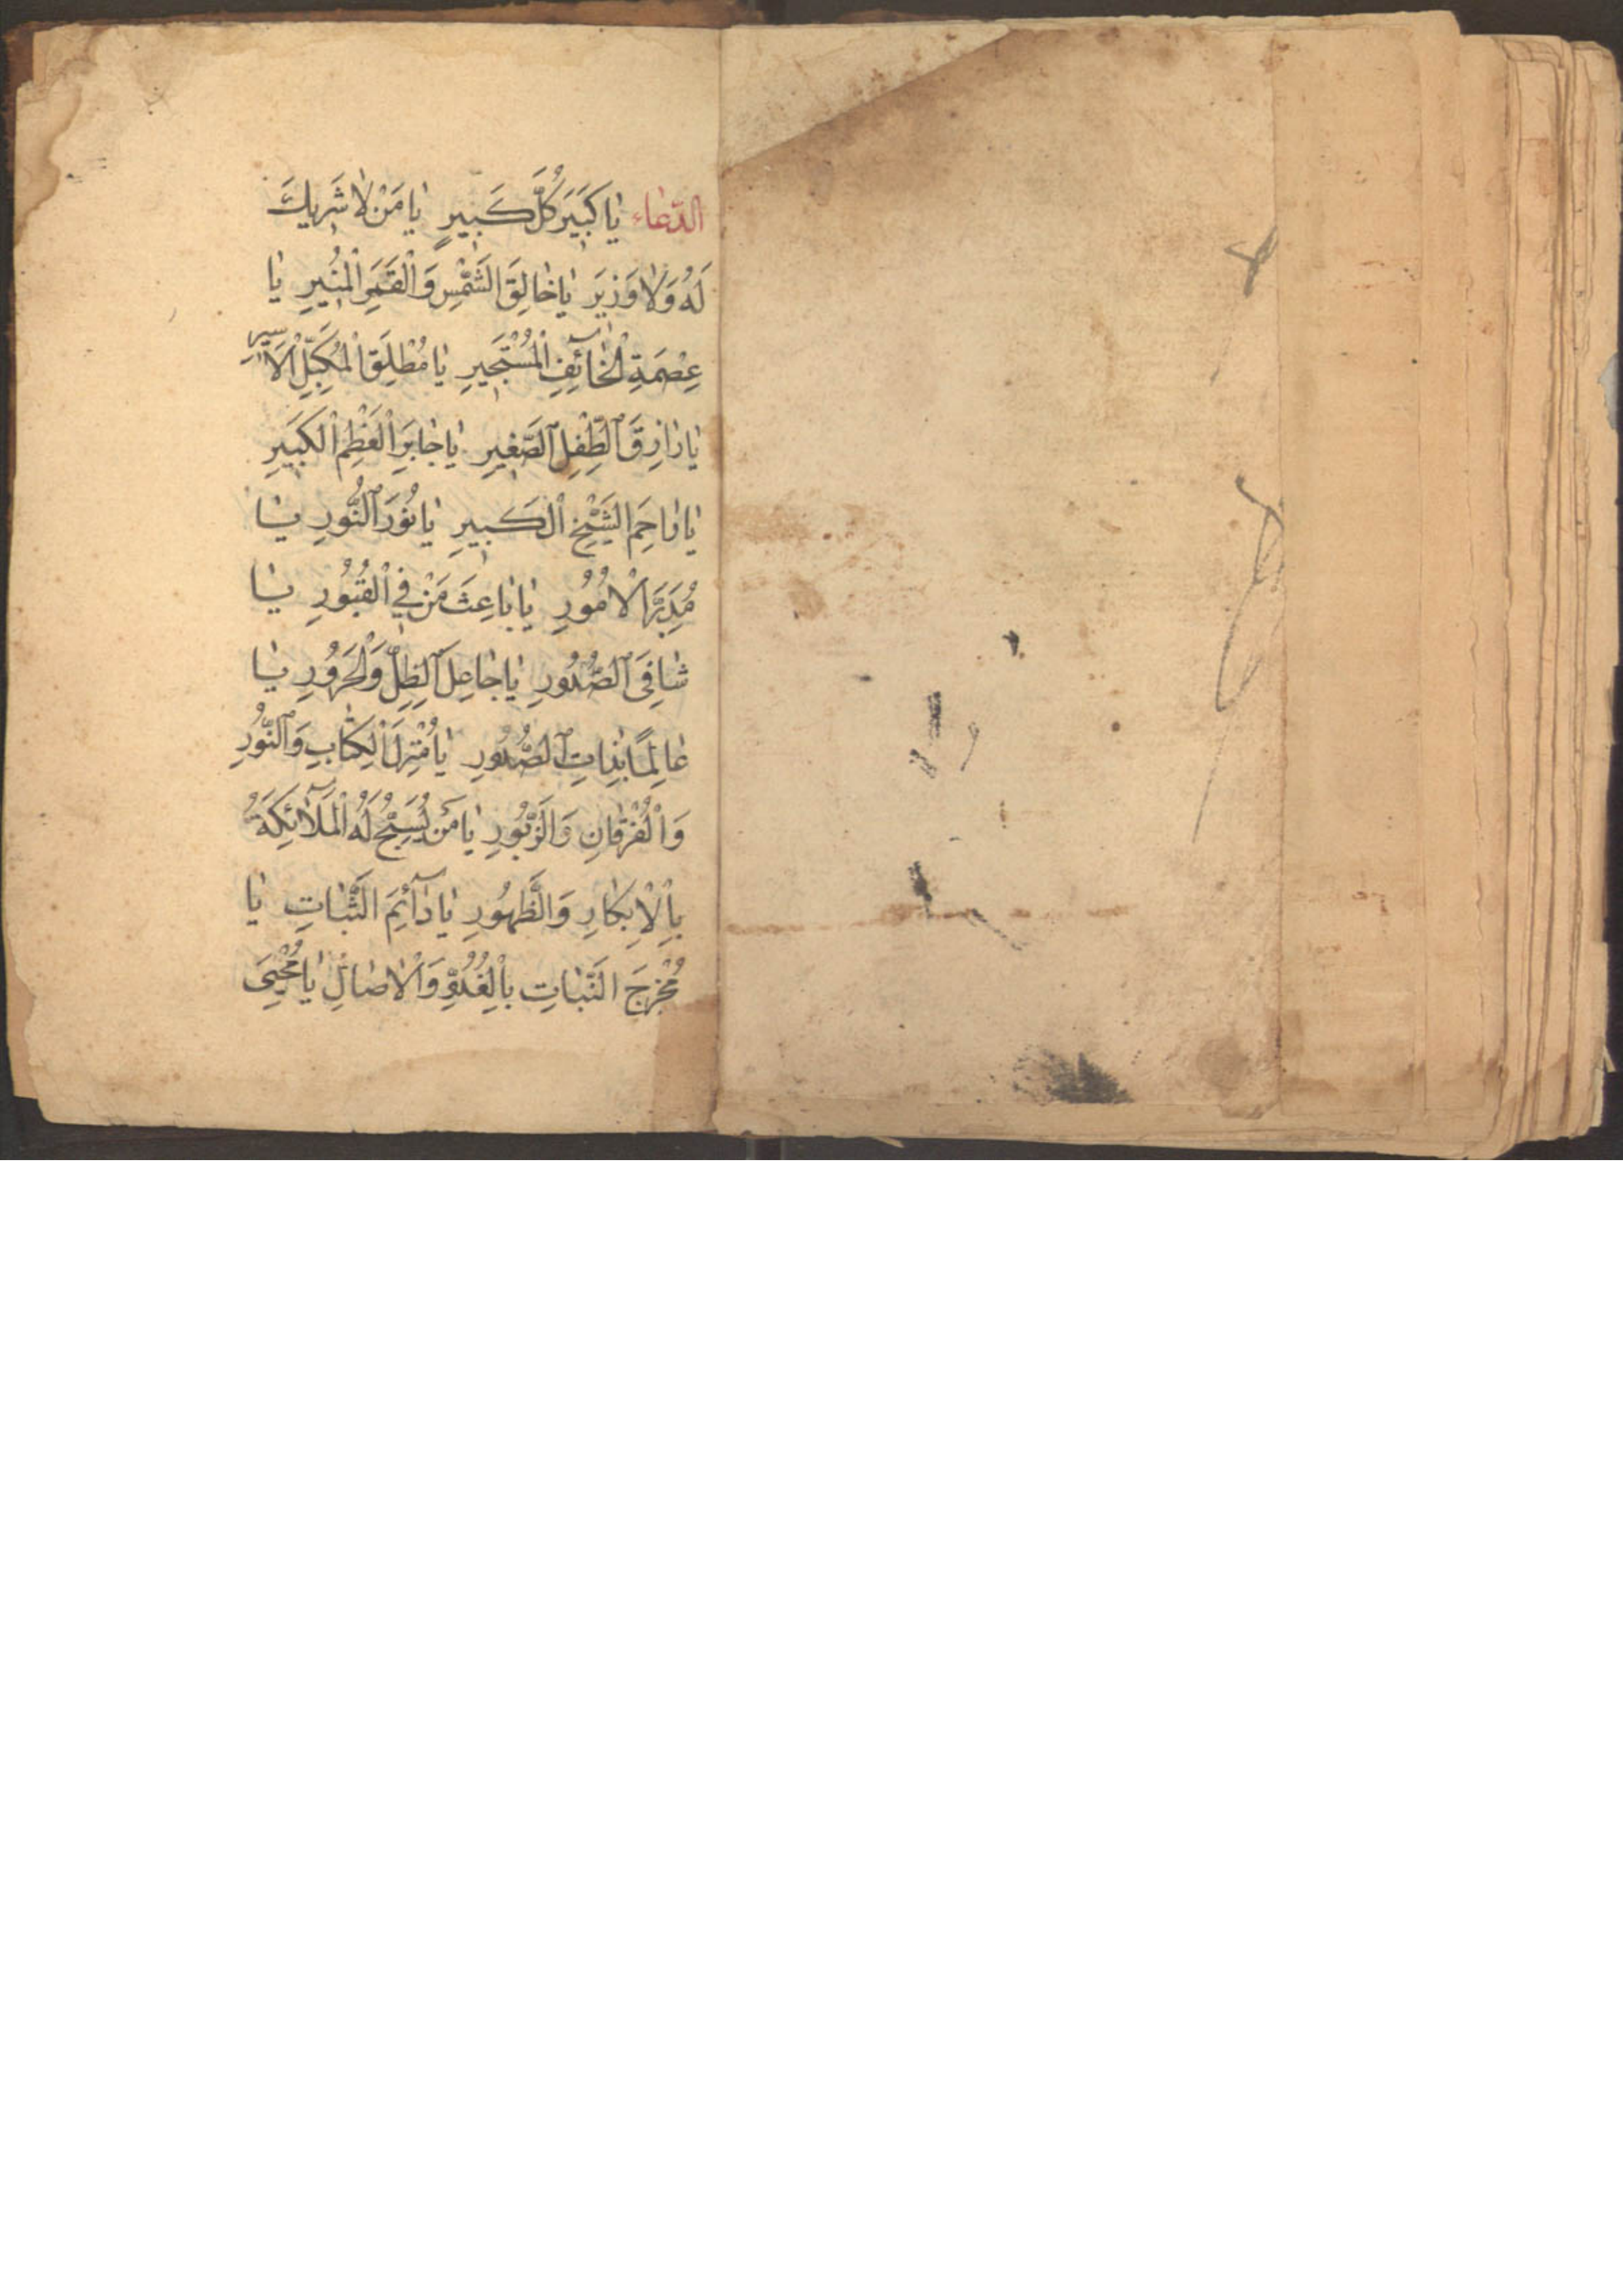 الدّعاء يَا كَبِيرَ كُلِّ كَبِيرٍ يَا مَنْ لَا شَرِيكَ
لَهُ وَلَا وَزِيرَ يَا خَالِقَ الشَّمْسِ وَالْقَمَرِ الْمُنِيرِ يَا
عِصْمَةَ الْخَآئِفِ الْمُسْتَجِيرِ يَا مُطْلِقَ الْمُكَبَّلِ الْأَسِيرِ
يَا رَازِقَ الطِّفْلِ الصَّغِيرِ يَا جَابِرَ الْعَظْمِ الْكَبِيرِ
يَا رَاحِمَ الشَّيْخِ الْكَبِيرِ يَا نُورَ النُّورِ يَا
مُدَبِّرَ الْأُمُورِ يَا بَاعِثَ مَنْ فِي الْقُبُورِ يَا
شَافِيَ الصُّدُورِ يَا جَاعِلَ الظِّلِّ وَالْحَرُورِ يَا
عَالِمًا بِذَاتِ الصُّدُورِ يَا مُنْزِلَ الْكِتَابِ وَالنُّورِ
وَالْفُرْقَانِ وَالزَّبُورِ يَا مَنْ يُسَبِّحُ لَهُ الْمَلَآئِكَةُ
بِالْإِبْكَارِ وَالظُّهُورِ يَا دَآئِمَ الثَّبَاتِ يَا
مُخْرِجَ النَّبَاتِ بِالْغُدُوِّ وَالْآصَالِ يَا مُحْيِيَ